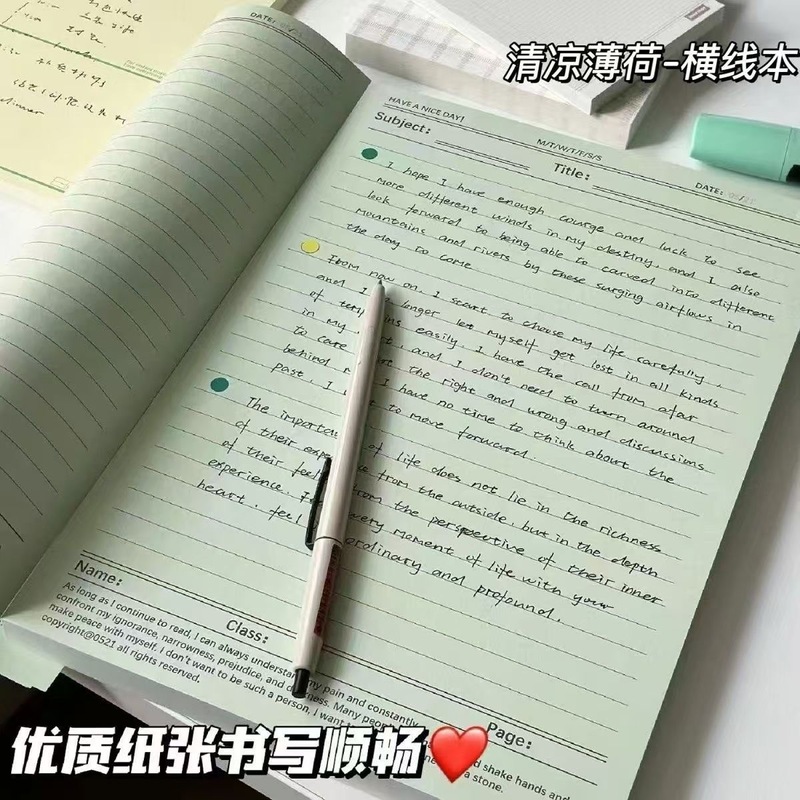 清凉薄荷-横线本
DATE:
HAVE A NICE DAY!
M/T/W/T/F/S/S
DATE:
Subject:
Title:
I hope I have enough courge and luck to see
more different winds in my destiny, and I also
look forward to being able to carved into different
mountains and rivers by these surging airflows in
the day to come
From now on, I start to choose my life carefully,
and I longer let myself get lost in all kinds
of easily. I have the call from afar
in my and I don't need to turn around
to care the right and wrong and discussions
behind I have no time to think about the
past, I to move forward.
The of life does not lie in the richness
of their from the outside, but in the depth
of their from the perspective of their inner
experience. every moment of life with your
heart, feel ordinary and profound.
Name:
Class:
Page:
As long as I continue to read, I can always understand my pain and constantly
confront my ignorance, narrowness, prejudice, and Many
make peace with myself. I don't want to be such a person, I want and shake hands and
copyright@0521 all rights reserved. a stone.
优质纸张书写顺畅